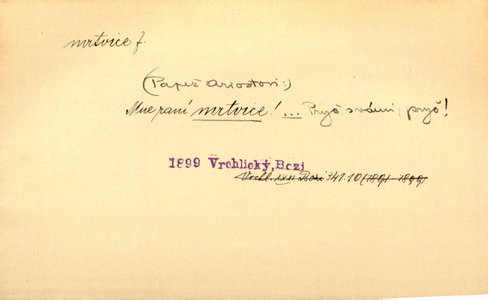 mrtvice f.
(Papež Ariostovi:)
Mne raní mrtvice! ... Pryč s vámi, pryč!
1899 Vrchlický, Bozi
Vrchl. XXXI Bozi 341.10 (1891-1899)